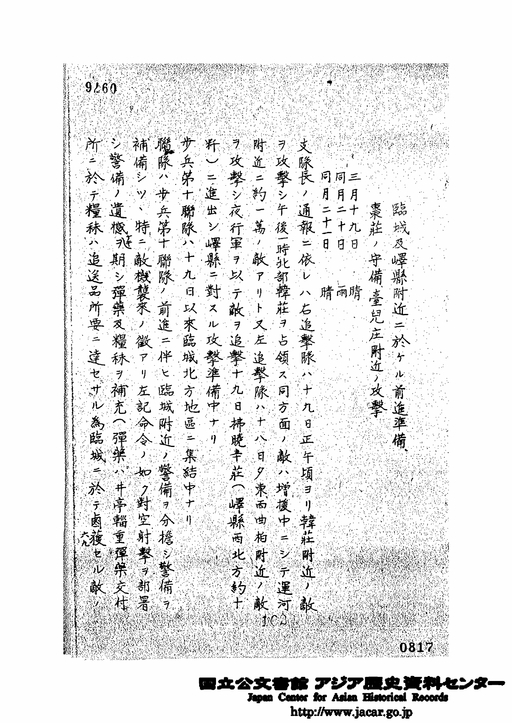 9260
臨城及嶧縣附近ニ於ケル前進準備、
棗莊ノ守備臺兒庄附近ノ攻擊
三月十九日 晴
同月二十日 雨
同月二十一日 晴
支隊長ノ通報ニ依レハ右追擊隊ハ十九日正午頃ヨリ韓莊附近ノ敵
ヲ攻擊シ午後一時北部韓莊ヲ占領ス同方面ノ敵ハ增援中ニシテ運河
附近ニ約一萬ノ敵アリト又左追擊隊ハ十八日夕東西曲柏附近ノ敵
ヲ攻擊シ夜行軍ヲ以テ敵ヲ追擊十九日拂曉辛莊(嶧縣西北方約十
粁)ニ進出シ嶧縣ニ對スル攻擊準備中ナリ
步兵第十聯隊ハ十九日以來臨城北方地區ニ集結中ナリ
聯隊ハ步兵第十聯隊ノ前進ニ伴ヒ臨城附近ノ警備ヲ分擔シ警備ヲ
補備シツヽ特ニ敵機襲來ノ徵アリ左記命令ノ如ク對空射擊ヲ部署
シ警備ノ遺憾ナキヲ期シ彈藥及糧秣ヲ補充(彈藥ハ井亭輜重彈藥交付
所ニ於テ糧秣ハ追送品所要ニ達セサル為臨城ニ於テ鹵獲セル敵ノ
0817
国立公文書館 アジア歴史資料センター
Japan Center for Asian Historical Records
http://www.jacar.go.jp